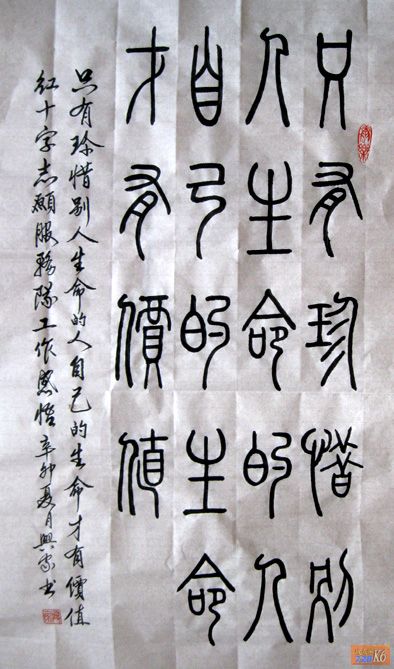 只有珍惜别
人生命的人
自己的生命
才有價值
只有珍惜别人生命的人自己的生命才有價值
红十字志願服務隊工作感悟 辛卯夏月興家书
K6